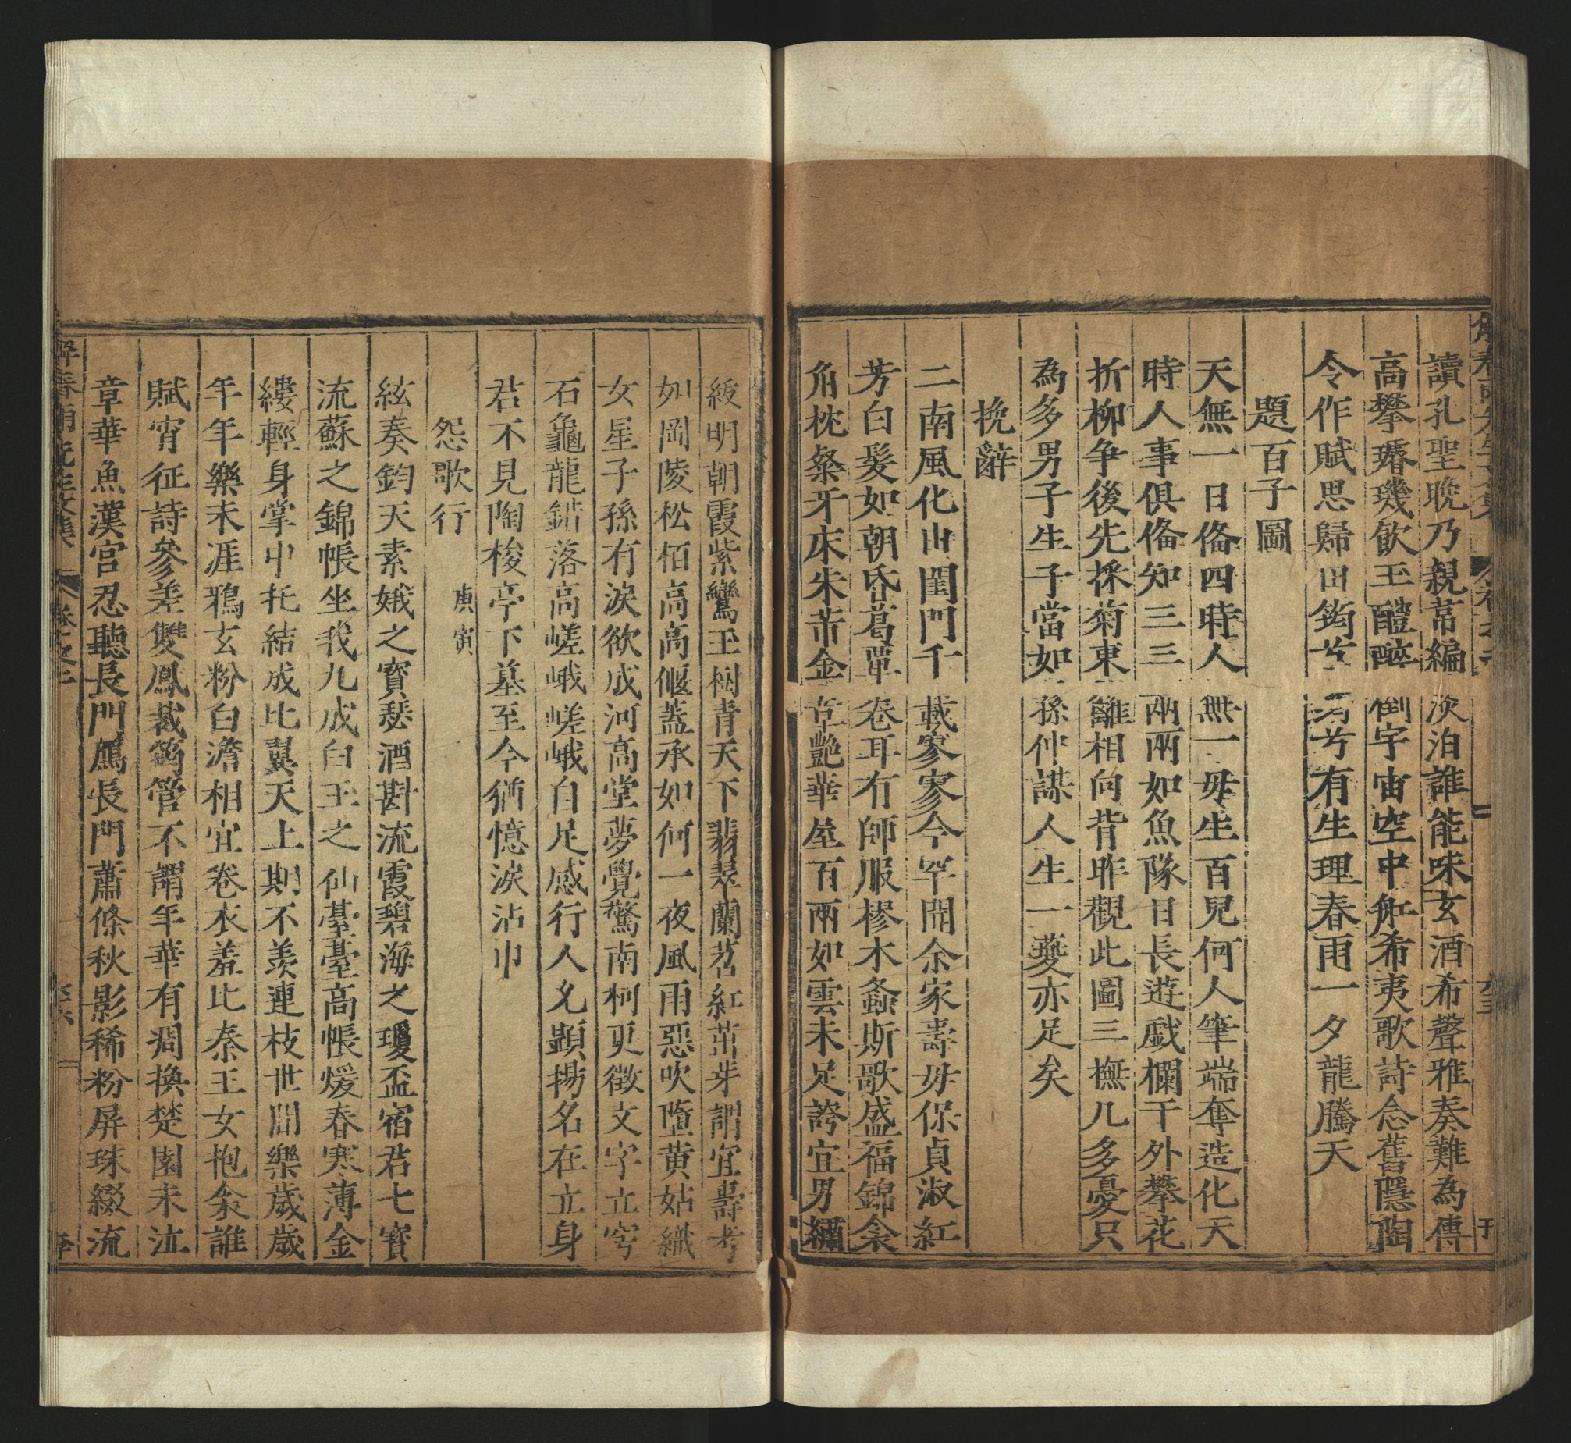 讀孔聖晚乃親韋編淡泊誰能味玄酒希聲雅奏難為傳
高攀璿璣飲玉醴醉倒宇宙空中舡希夷歌詩念舊隱陶
令作賦思歸田筠芳有生理春雨一夕龍騰天
題百子圖
天無一日俻四時人無一母生百兒何人筆端奪造化天
時人事俱俻知三三兩兩如魚隊日長遊戲欄干外攀花
折柳争後先採菊東籬相向背昨觀此圖三撫几多憂只
為多男子生子當如孫仲謀人生一夔亦足矣
挽辭
二南風化由閨門千載寥寥今罕聞余家壽母保貞淑紅
芳白髮如朝昏葛覃卷耳有師服樛木螽斯歌盛福錦衾
角枕粲牙床朱芾金艷華屋百兩如雲未足誇宜男繡
綬明朝霞紫鸞玉樹青天下翡翠蘭苕紅茁芽謂宜壽考
如岡陵松栢高高偃蓋承如何一夜風雨惡吹墮黄姑織
女星子孫有淚欲成河高堂夢覺驚南柯更徵文字立穹
石龜龍錯落高嵯峨嵯峨自足感行人允顯揚名在立身
君不見陶梭亭下墓至今猶憶淚沾巾
怨歌行 庚寅
絃奏鈞天素娥之寳瑟酒斟流霞碧海之瓊盃宿君七寳
流蘇之錦帳坐我九成白玉之仙臺臺高帳煖春寒薄金
縷輕身掌中托結成比翼天上期不羨連枝世間樂歲歲
年年樂未涯鴉玄粉白澹相宜卷衣羞比秦王女抱衾誰
賦宵征詩參差雙鳳裁筠管不謂年華有凋換楚園未泣
章華魚漢宫忍聽長門鴈長門蕭條秋影稀粉屏珠綴流